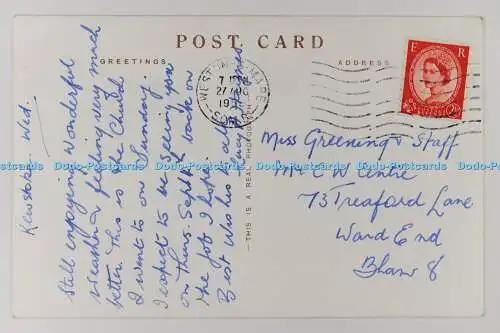 POST CARD
GREETINGS
ADDRESS
E R
WESTON-S-MARE
SOM
Kewstoke. Wed.
Still enjoying wonderful
weather & feeling very much
better. This is the Church
I went to on Sunday.
I expect to be seeing you
on Thurs. Sept back on
the job I hope.
Best wishes to all
THIS IS A REAL PHOTOGRAPH
Miss Greening & Staff
M & C W Centre
73 Treaford Lane
Ward End
Bham 8
Dodo-Postcards Dodo-Postcards Dodo-Postcards Dodo-Postcards Dodo-Postcards